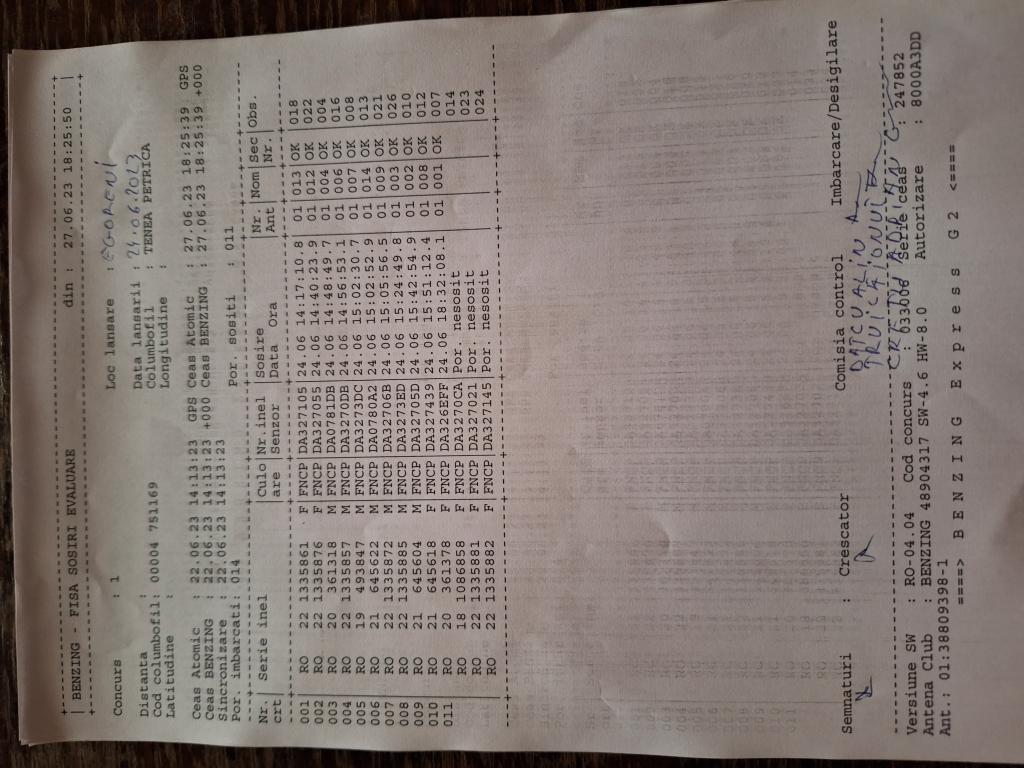 BENZING - FISA SOSIRI EVALUARE din : 27.06.23 18:25:50
Concurs : 1 Loc lansare : EGORENI
Distanta : Data lansarii : 24.06.2023
Cod columbofil: 00004 751169 Columbofil : TENEA PETRICA
Latitudine : Longitudine :
Ceas Atomic : 22.06.23 14:13:23 GPS Ceas Atomic : 27.06.23 18:25:39 GPS
Ceas BENZING : 22.06.23 14:13:23 +000 Ceas BENZING : 27.06.23 18:25:39 +000
Sincronizare : 22.06.23 14:13:23
Por. imbarcati: 014 Por. sositi : 011
Nr. | Serie inel |Culo|Nr.inel |Sosire |Nr. |Nom|Sec|Obs.
crt| |are |Senzor |Data Ora |Ant | |Nr.|
001 RO 22 1335861 F FNCP DA327105 24.06 14:17:10.8 01 013 OK 018
002 RO 22 1335876 F FNCP DA327055 24.06 14:40:23.9 01 012 OK 022
003 RO 20 361318 M FNCP DA0781DB 24.06 14:48:49.7 01 004 OK 004
004 RO 22 1335857 M FNCP DA3270DB 24.06 14:56:53.1 01 006 OK 016
005 RO 19 493847 M FNCP DA3273DC 24.06 15:02:30.7 01 007 OK 008
006 RO 21 645622 M FNCP DA0780A2 24.06 15:02:52.9 01 014 OK 013
007 RO 22 1335872 M FNCP DA32706B 24.06 15:05:56.5 01 009 OK 021
008 RO 22 1335885 M FNCP DA3273ED 24.06 15:24:49.8 01 003 OK 026
009 RO 21 645604 M FNCP DA32705D 24.06 15:42:54.9 01 002 OK 010
010 RO 21 645618 F FNCP DA327439 24.06 15:51:12.4 01 008 OK 012
011 RO 20 361378 F FNCP DA326EFF 24.06 18:32:08.1 01 001 OK 007
RO 18 1086858 F FNCP DA3270CA Por. nesosit 014
RO 22 1335881 F FNCP DA327021 Por. nesosit 023
RO 22 1335882 F FNCP DA327145 Por. nesosit 024
Semnaturi : Crescator Comisia control Imbarcare/Desigilare
Versiune SW : RO-04.04 Cod concurs : 033006 Serie ceas : 247852
Antena Club : BENZING 48904317 SW-4.6 HW-8.0 Autorizare : 8000A3DD
Ant.: 01:38809398-1
====> B E N Z I N G E x p r e s s G 2 <====